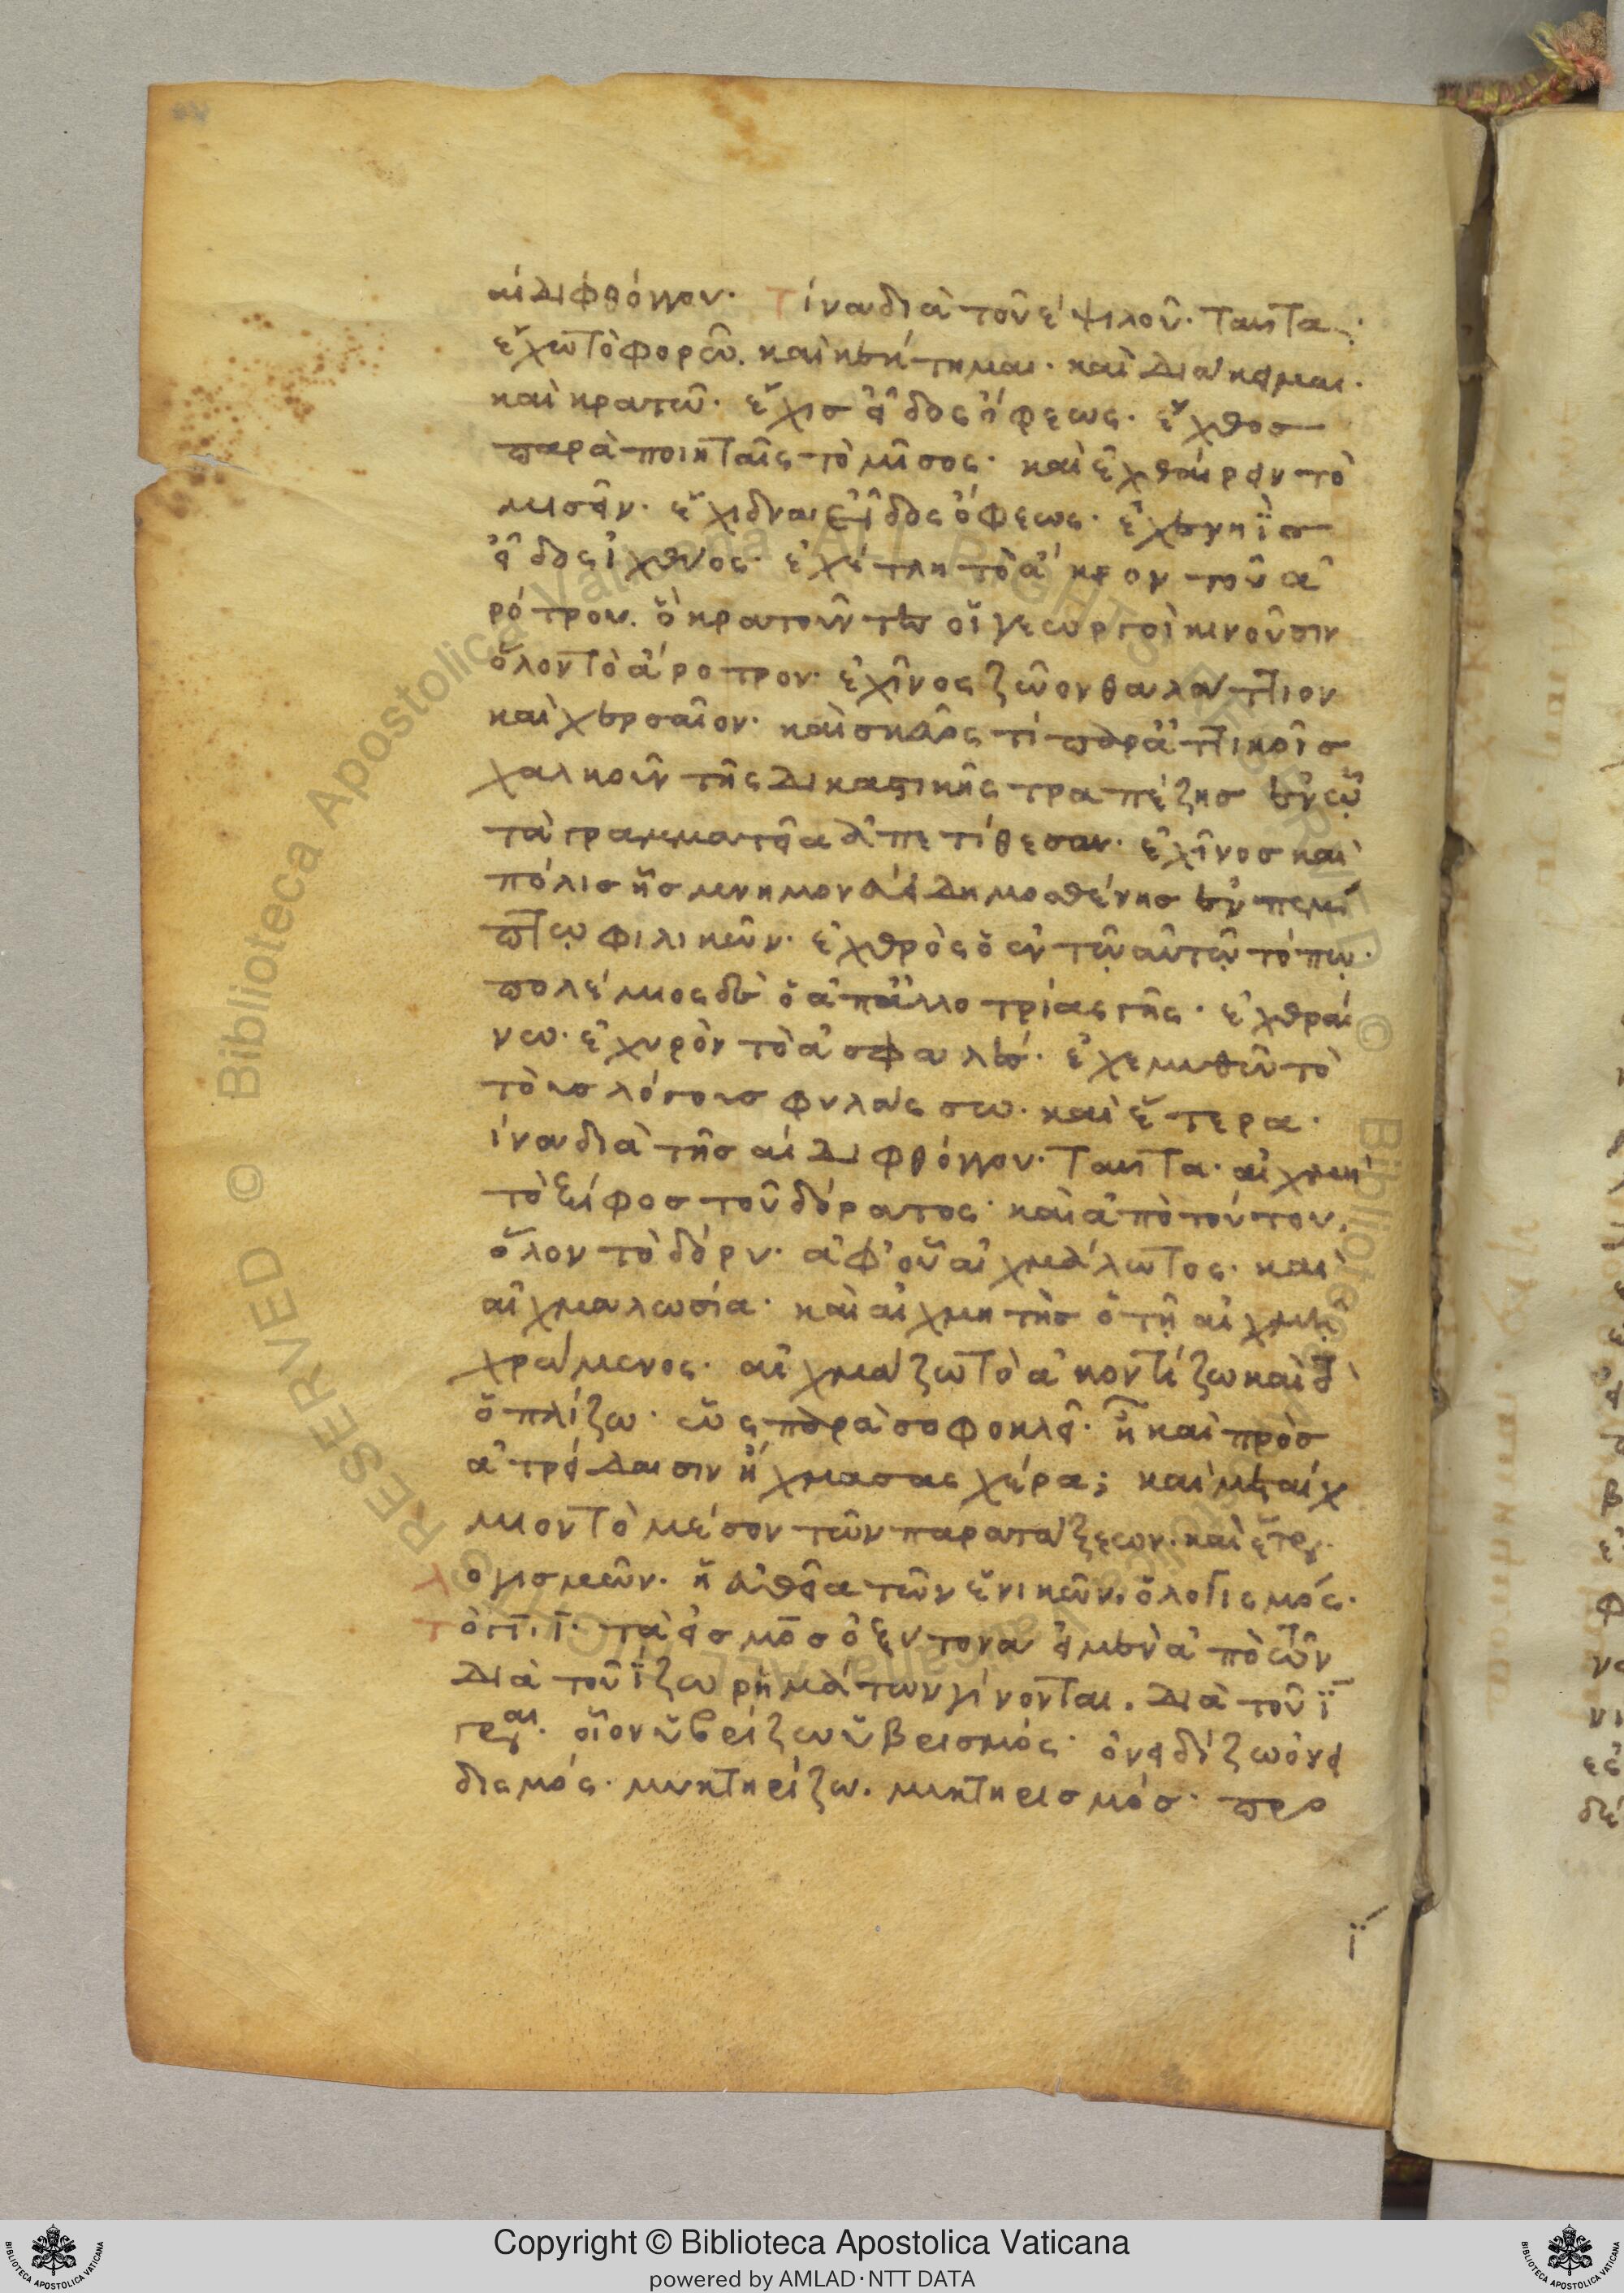 αι διφθόγγου· Τίνα διὰ τοῦ ἐ ψιλοῦ· ταῦτα·
ἔχω τὸ φορῶ. καὶ κέκτημαι· καὶ διάκειμαι·
καὶ κρατῶ· ἔχις εἶδος ὄφεως· ἔχθος
παρὰ ποιηταῖς τὸ μῖσος· καὶ ἐχθαίρειν τὸ
μισεῖν· ἔχιδνα εἶδος ὄφεως· ἐχενηῒς
εἶδος ἰχθύος· ἐχέτλη τὸ ἄκρον τοῦ ἀ
ρότρου. ὃ κρατοῦντες οἱ γεωργοὶ κινοῦσιν
ὅλον τὸ ἄροτρον· ἐχῖνος ζῶον θαλάττιον
καὶ χερσαῖον· καὶ σκεῦος τί παρ' ἀττικοῖς
χαλκοῦν τῆς δικαστικῆς τραπέζης ἐν ᾧ
τὰ γραμματεῖα ἀπετίθεσαν· ἐχῖνος καὶ
πόλις ἧς μνημονεύει Δημοσθένης ἐν πέμ
πτῳ φιλικῶν· ἐχθρὸς ὁ ἐν τῷ αὐτῷ τόπῳ·
πολέμιος δὲ ὁ ἀπ' ἀλλοτρίας γῆς· ἐχθραί
νω· ἐχυρὸν τὸ ἀσφαλές· ἐχεμυθῶ τὸ
τοὺς λόγους φυλάσσω· καὶ ἕτερα·
ίνα διὰ τῆς αι διφθόγγου· ταῦτα· αἰχμὴ
τὸ ξίφος τοῦ δόρατος· καὶ ἀπὸ τούτου,
ὅλον τὸ δόρυ· ἀφ' οὗ αἰχμάλωτος· καὶ
αἰχμαλωσία· καὶ αἰχμητὴς ὁ τῇ αἰχμῇ
χρώμενος· αἰχμάζω τὸ ἀκοντίζω καὶ τὸ
ὁπλίζω· ὡς παρὰ σοφοκλεῖ· ἦ καὶ πρὸς
ἀτρείδαισιν ᾔχμασας χέρα; καὶ μεταίχ
μιον τὸ μέσον τῶν παρατάξεων· καὶ ἕτερ
λογισμῶν· ἡ εὐθεῖα τῶν ἑνικῶν, ὁ λογισμός·
τὸ γι, ι· τὰ εἰς μος ὀξύτονα εἰ μὲν ἀπὸ τῶν
διὰ τοῦ ίζω ῥημάτων γίνονται. διὰ τοῦ ϊ
γραι. οἷον ὑβρίζω ὑβρισμός· ὀνειδίζω ὀνει
δισμός· μυκτηρίζω. μυκτηρισμός· προ
ϊ
Copyright © Biblioteca Apostolica Vaticana
powered by AMLAD·NTT DATA